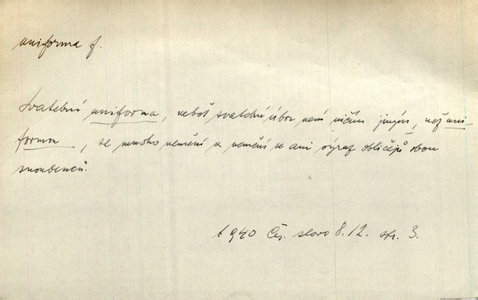 uniforma f.
Svatební uniforma, neboť svatební úbor není ničím jiným, než uni
forma, se mnoho nemění a nemění se ani výraz obličejů obou
snoubenců.
1940 Čes. slovo 8.12. str. 3.